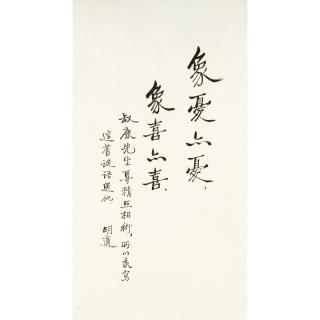 象憂亦憂,
象喜亦喜.
叔康先生專精照相術,所以我寫
這首謎語送他. 胡適